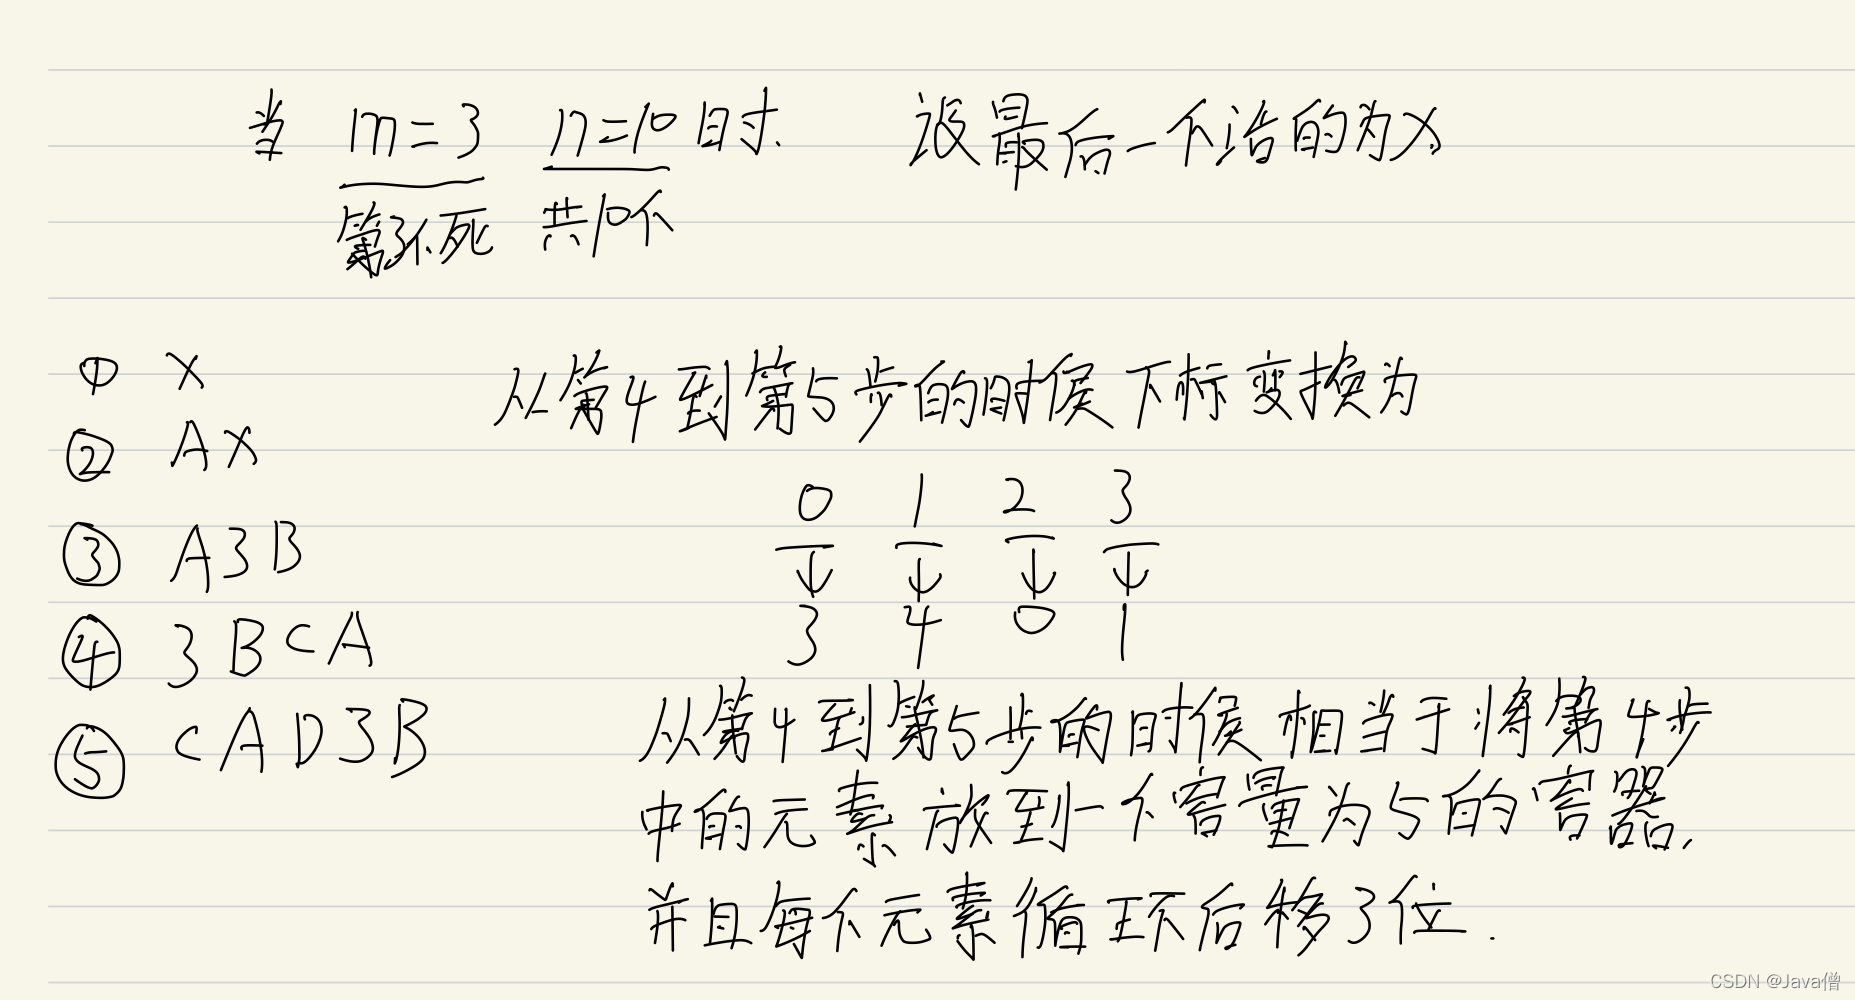 当 m=3 n=10时. 设最后一个活的为X
第3个死 共10个
① X
从第4到第5步的时候下标变换为
② AX
0 1 2 3
③ A3B
↓ ↓ ↓ ↓
3 4 0 1
④ 3BCA
从第4到第5步的时候相当于将第4步
⑤ CAD3B
中的元素放到一个容量为5的容器.
并且每个元素循环后移3位.
CSDN @Java僧